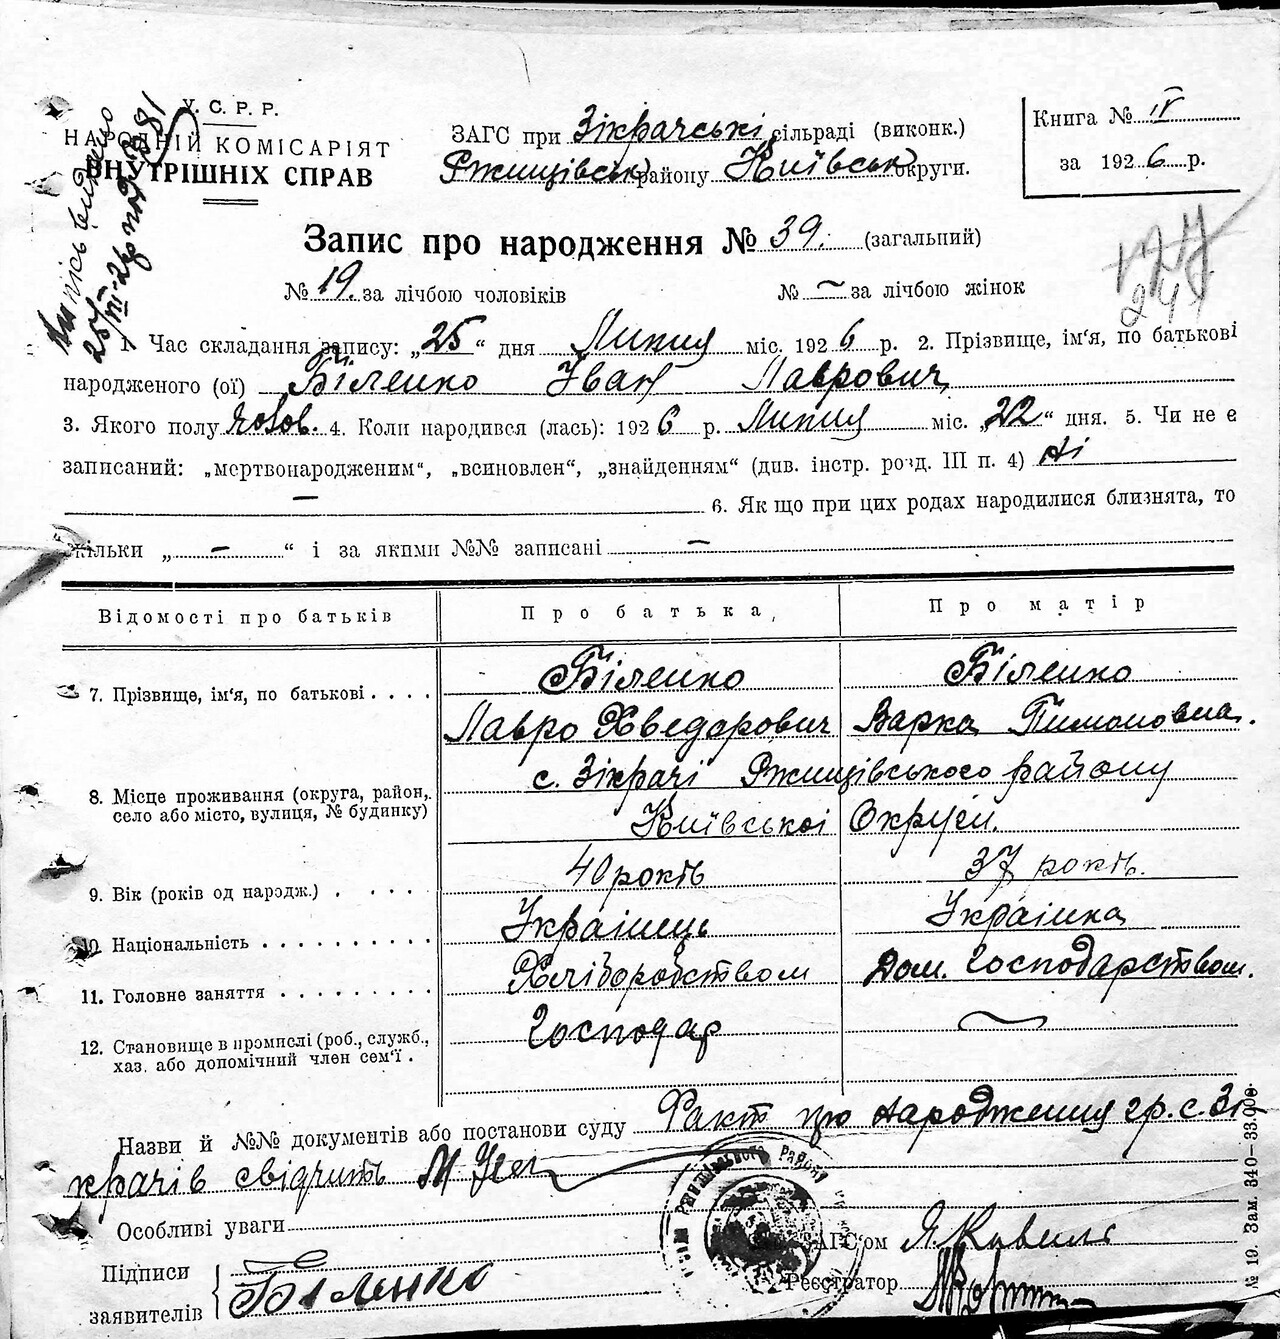 У. С. Р. Р.
НАРОДНІЙ КОМІСАРІЯТ
ВНУТРІШНІХ СПРАВ
видано
ЗАГС при Зікрачські сільраді (виконк.)
Ржищівськ району Київськ округи.
Книга № IV
за 1926 р.
Запис про народження № 39. (загальний)
№ 19. за лічбою чоловіків № — за лічбою жінок
24
1. Час складання запису: „25“ дня Липня міс. 1926 р. 2. Прізвище, ім'я, по батькові
народженого (ої) Біленко Іван Лаврович
3. Якого полу чолов. 4. Коли народився (лась): 1926 р. Липня міс. „22“ дня. 5. Чи не є
записаний: „мертвонародженим“, „всиновлен“, „знайденням“ (див. інстр. розд. III п. 4) Ні
— 6. Як що при цих родах народилися близнята, то
скільки „ — “ і за якими №№ записані —
Відомості про батьків Про батька Про матір
7. Прізвище, ім'я, по батькові . . . . Біленко Біленко
Лавро Хведорович Варка Тимоповна.
8. Місце проживання (округа, район, село або місто, вулиця, № будинку) с. Зікрачі Ржищівського району
Київської Округи.
9. Вік (років од народж.) . . . . . 40 років 37 років.
10. Національність . . . . . . . . . . Українець Українка
11. Головне заняття . . . . . . . . . Хліборобством Дом. Господарством.
12. Становище в промислі (роб., служб., Господар —
хаз. або допомічний член сем'ї .
Назви й №№ документів або постанови суду Факт цю народження гр. с. Зі-
крачів свідчить
Особливі уваги
Підписи
заявителів Біленко
АГС'ом
Реєстратор
№ 19. Зам. 340—33.000.